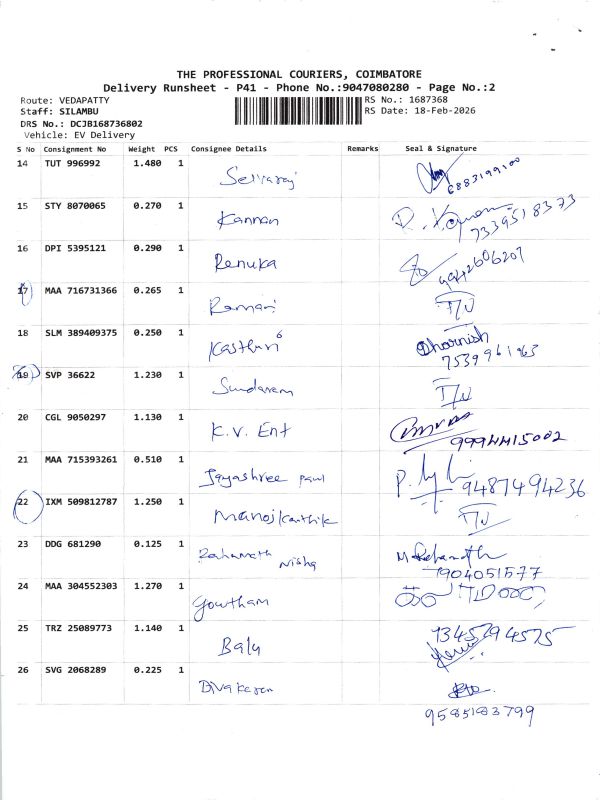 THE PROFESSIONAL COURIERS, COIMBATORE
Delivery Runsheet - P41 - Phone No.:9047080280 - Page No.:2
Route: VEDAPATTY RS No.: 1687368
Staff: SILAMBU RS Date: 18-Feb-2026
DRS No.: DCJB168736802
Vehicle: EV Delivery
S No Consignment No Weight PCS Consignee Details Remarks Seal & Signature
14 TUT 996992 1.480 1 Selvaraj
6883199100
15 STY 8070065 0.270 1 Kannan
7339518373
16 DPI 5395121 0.290 1 Renuka
9942606207
17 MAA 716731366 0.265 1
18 SLM 389409375 0.250 1 Kasthuri Dharnish
7539961963
19 SVP 36622 1.230 1 Sundaram
20 CGL 9050297 1.130 1 K.V. Ent
9994415002
21 MAA 715393261 0.510 1 Jayashree
9487494236
22 IXM 509812787 1.250 1 Manojkarthik
23 DDG 681290 0.125 1 Rahamath Nisha
7904051577
24 MAA 304552303 1.270 1 Gowtham
25 TRZ 25089773 1.140 1 Balu
7345794575
26 SVG 2068289 0.225 1 Divakaran
9585183799